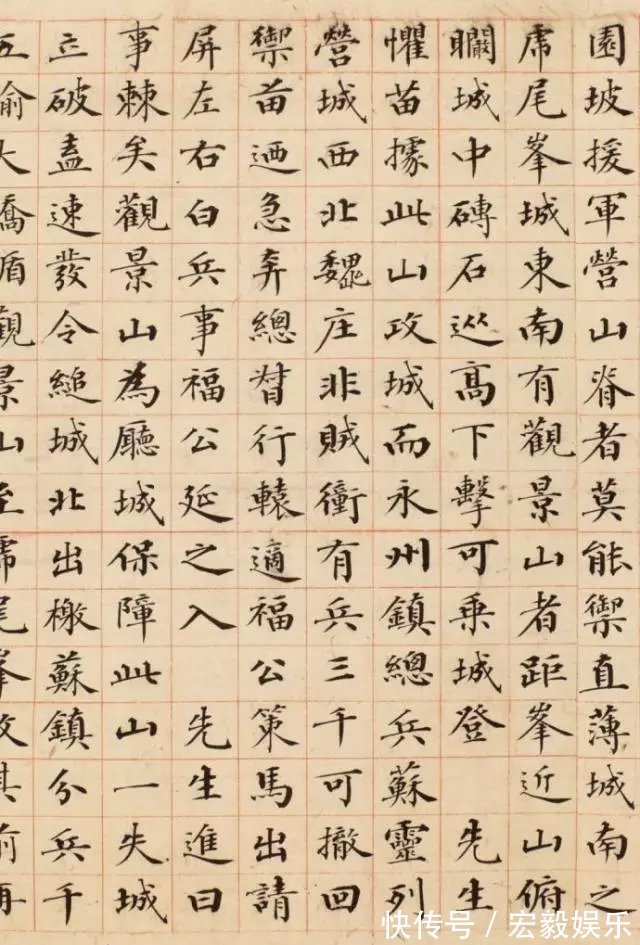 園坡援軍營山脊者莫能禦直薄城南之
虎尾峯城東南有觀景山者距峯近山俯
矙城中磚石巡高下擊可乘城登 先生
懼苗據此山攻城而永州鎮總兵蘇靈列
營城西北魏庄非賊衝有兵三千可撤回
禦苗迺急奔總督行轅適福公策馬出請
屏左右白兵事福公延之入 先生進曰
事棘矣觀景山為廳城保障此山一失城
立破盍速發令縋城北出檄蘇鎮分兵千
五大觀景山至虎尾峯攻其前再
快传号／宏毅娱乐